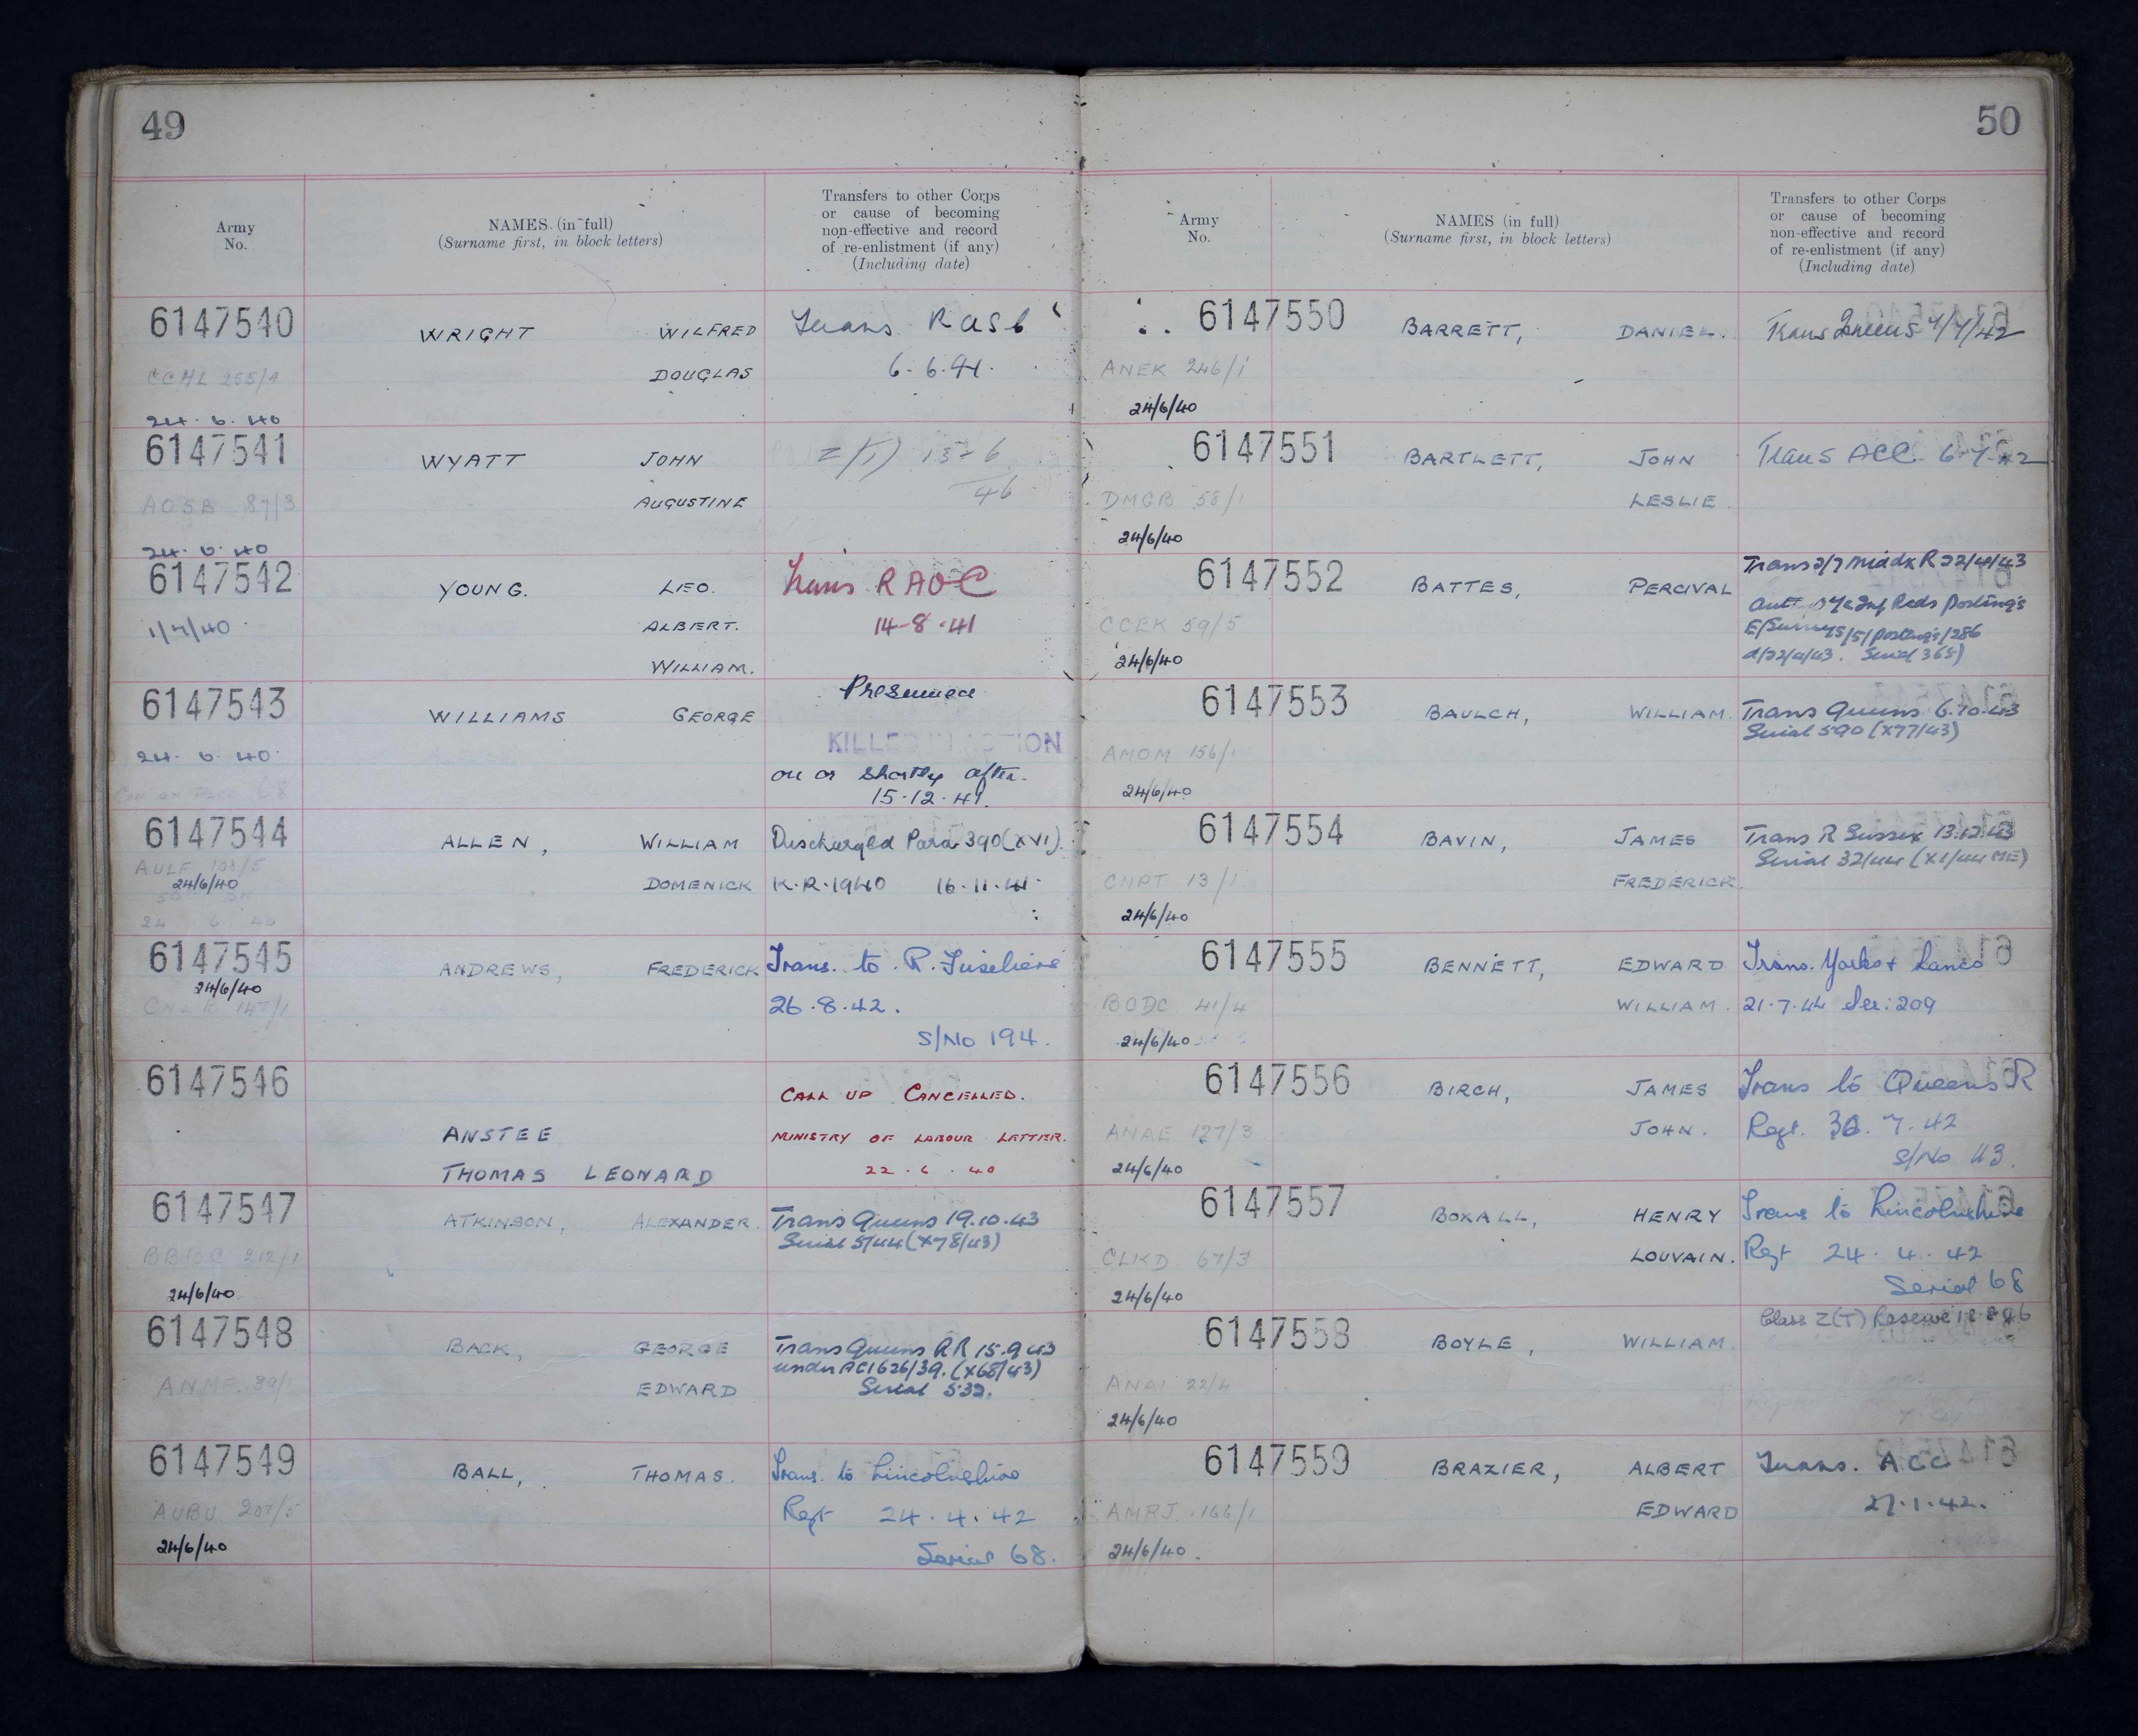 49
Army
No.
NAMES (in full)
(Surname first, in block letters)
Transfers to other Corps
or cause of becoming
non-effective and record
of re-enlistment (if any)
(Including date)
6147540
WRIGHT WILFRED Trans. RASC
DOUGLAS 6.6.41.
CCHL 255/4
24.6.40
6147541
WYATT JOHN Z(T) 13 6
AUGUSTINE 46
AOSB 87/3
24.6.40
6147542
YOUNG. LEO. Trans RAOC
1/7/40 ALBERT. 14-8-41
WILLIAM.
6147543 Presumed
WILLIAMS GEORGE
KILLED IN ACTION
24.6.40
on or shortly after.
15.12.41.
6147544
ALLEN, WILLIAM Discharged Para 390(XVI).
24/6/40 DOMENICK K.R.1940 16.11.41.
24 6 40
6147545
ANDREWS, FREDERICK Trans. to R. Fusiliers
24/6/40
26.8.42.
S/No 194.
6147546
CALL UP CANCELLED.
ANSTEE MINISTRY OF LABOUR LETTER.
THOMAS LEONARD 22.6.40
6147547
ATKINSON, ALEXANDER. Trans Queens 19.10.43
Serial 5/44 (X78/43)
24/6/40
6147548
BACK, GEORGE Trans Queens RR 15.9.43
under ACI 626/39. (X68/43)
EDWARD Serial 532.
6147549
BALL, THOMAS. Trans. to Lincolnshire
AUBU 207/5 Regt 24.4.42
24/6/40 Serial 68.
50
Army
No.
NAMES (in full)
(Surname first, in block letters)
Transfers to other Corps
or cause of becoming
non-effective and record
of re-enlistment (if any)
(Including date)
6147550
BARRETT, DANIEL. Trans Queens 7/7/42
ANEK 246/1
24/6/40
6147551
BARTLETT, JOHN Trans ACC. 6-7-42
DMGB 58/1 LESLIE
24/6/40
6147552 Trans 2/7 Middx R 22/4/43
BATTES, PERCIVAL
CCEK 59/5
E/Surreys/5/postings/286
24/6/40 d/22/4/43. Serial 365)
6147553
BAULCH, WILLIAM. Trans Queens 6.10.43
Serial 590 (X77/43)
AMOM 156/1
24/6/40
6147554
BAVIN, JAMES Trans R Sussex 13.12.43
Serial 32/44 (X1/44 ME)
CNPT 13/1 FREDERICK.
24/6/40
6147555
BENNETT, EDWARD Trans. Yorks + Lancs
BODC 41/4 WILLIAM. 21.7.44 Ser: 209
24/6/40
6147556
BIRCH, JAMES Trans to Queens R
ANAE 127/3 JOHN. Regt. 30.7.42
24/6/40 S/No 113.
6147557
BOXALL, HENRY Trans to Lincolnshire
CLKD 67/3 LOUVAIN. Regt 24.4.42
24/6/40 Serial 68
6147558 Class Z(T) Reserve
BOYLE, WILLIAM.
ANAI 22/4
24/6/40
6147559
BRAZIER, ALBERT Trans. ACC
AMRJ. 166/1 EDWARD 27.1.42.
24/6/40.